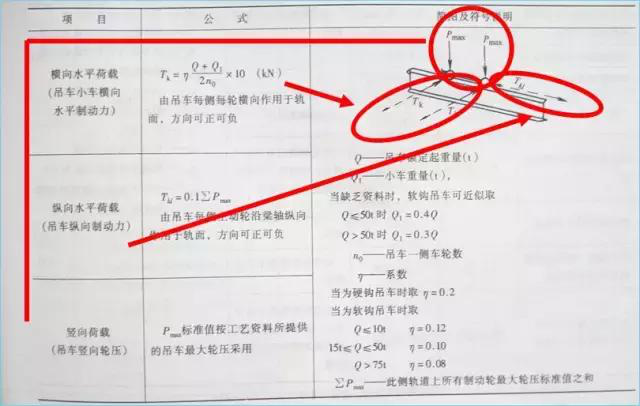 项 目
公 式
简图及符号说明
横向水平荷载
(吊车小车横向
水平制动力)
T_k = η (Q + Q_1)/(2n_0) ×10 (kN)
由吊车每侧每轮横向作用于轨
面，方向可正可负
P_max
P_max
T_k
T_kl
Q——吊车额定起重量(t)
Q_1——小车重量(t)，
当缺乏资料时，软钩吊车可近似取
Q≤50t 时 Q_1 = 0.4Q
Q>50t 时 Q_1 = 0.3Q
n_0——吊车一侧车轮数
η——系数
当为硬钩吊车时取 η = 0.2
当为软钩吊车时取
Q≤10t η = 0.12
15t≤Q≤50t η = 0.10
Q>75t η = 0.08
∑P_max——此侧轨道上所有制动轮最大轮压标准值之和
纵向水平荷载
(吊车纵向制动力)
T_kl = 0.1∑P_max
由吊车每侧主动轮沿梁轴纵向
作用于轨面、方向可正可负
竖向荷载
(吊车竖向轮压)
P_max标准值按工艺资料所提供
的吊车最大轮压采用